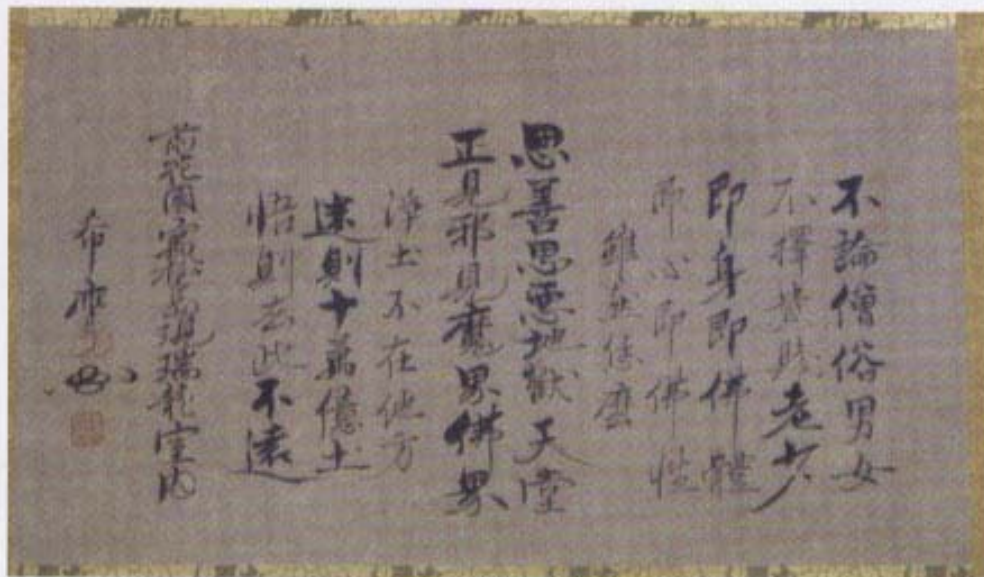 不論僧俗男女
不擇貴賎老少
即身即佛體
即心即佛性
雖無恁麼
思善思惡地獄天堂
正見邪見魔界佛界
淨土不在他方
迷則十萬億土
悟則去此不遠
前花園 瑞龍室内
希